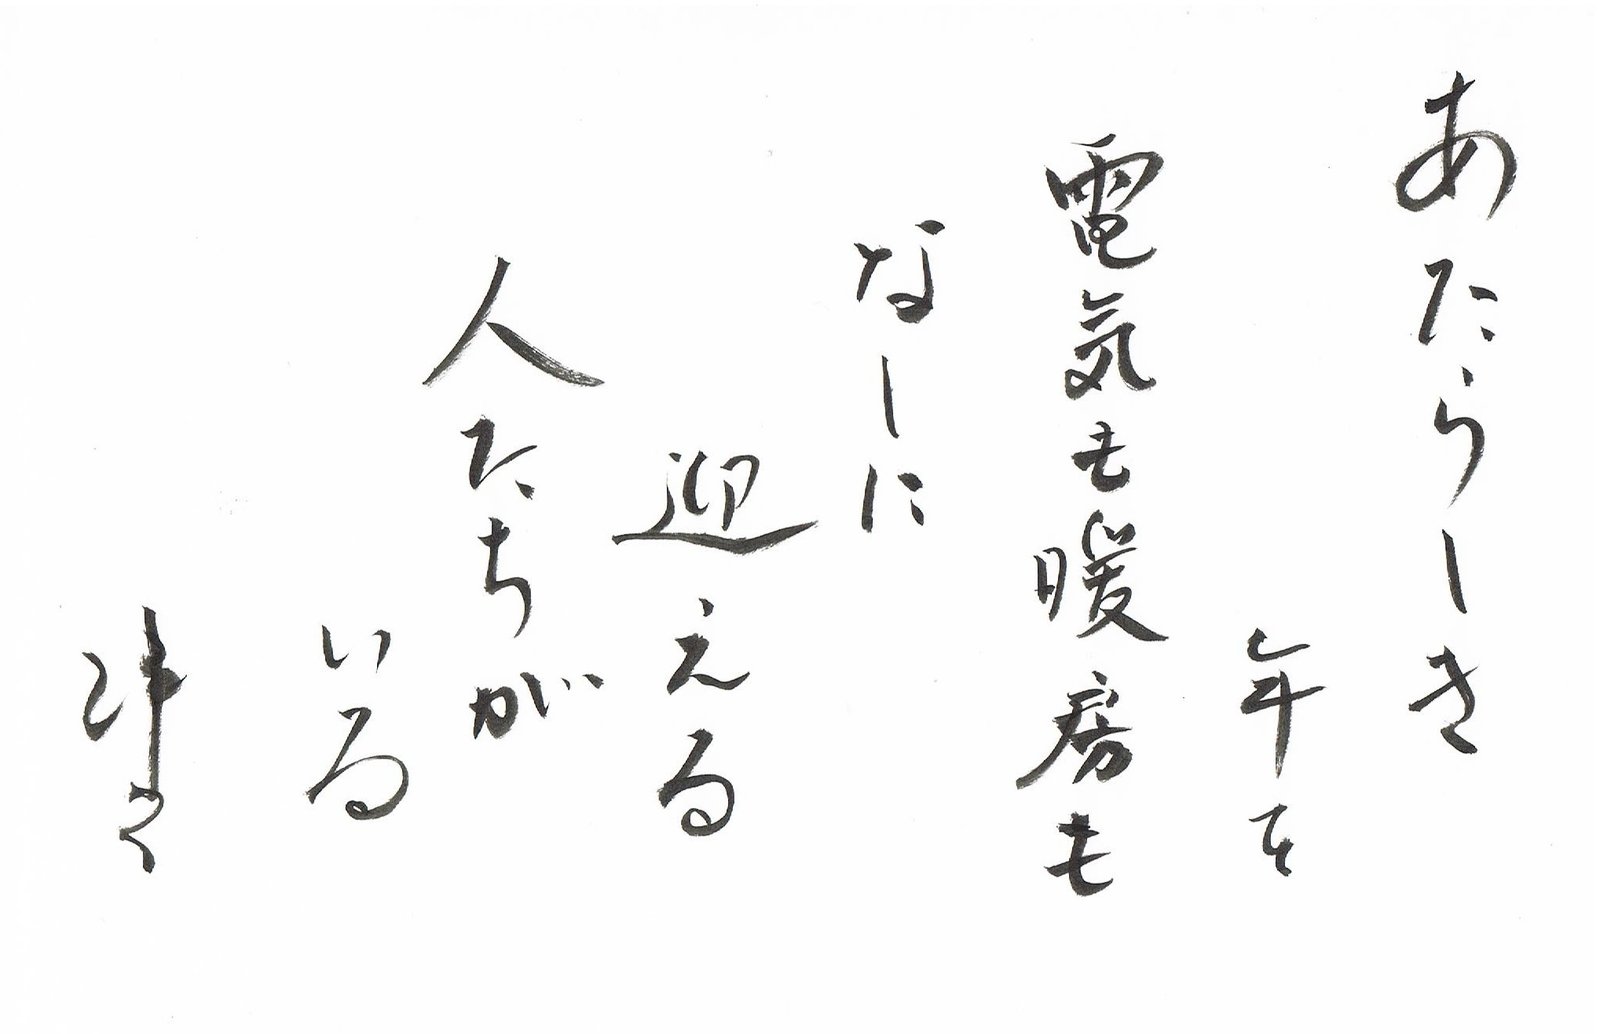 あたらしき
年を
電気も暖房も
なしに
迎える
人たちが
いる